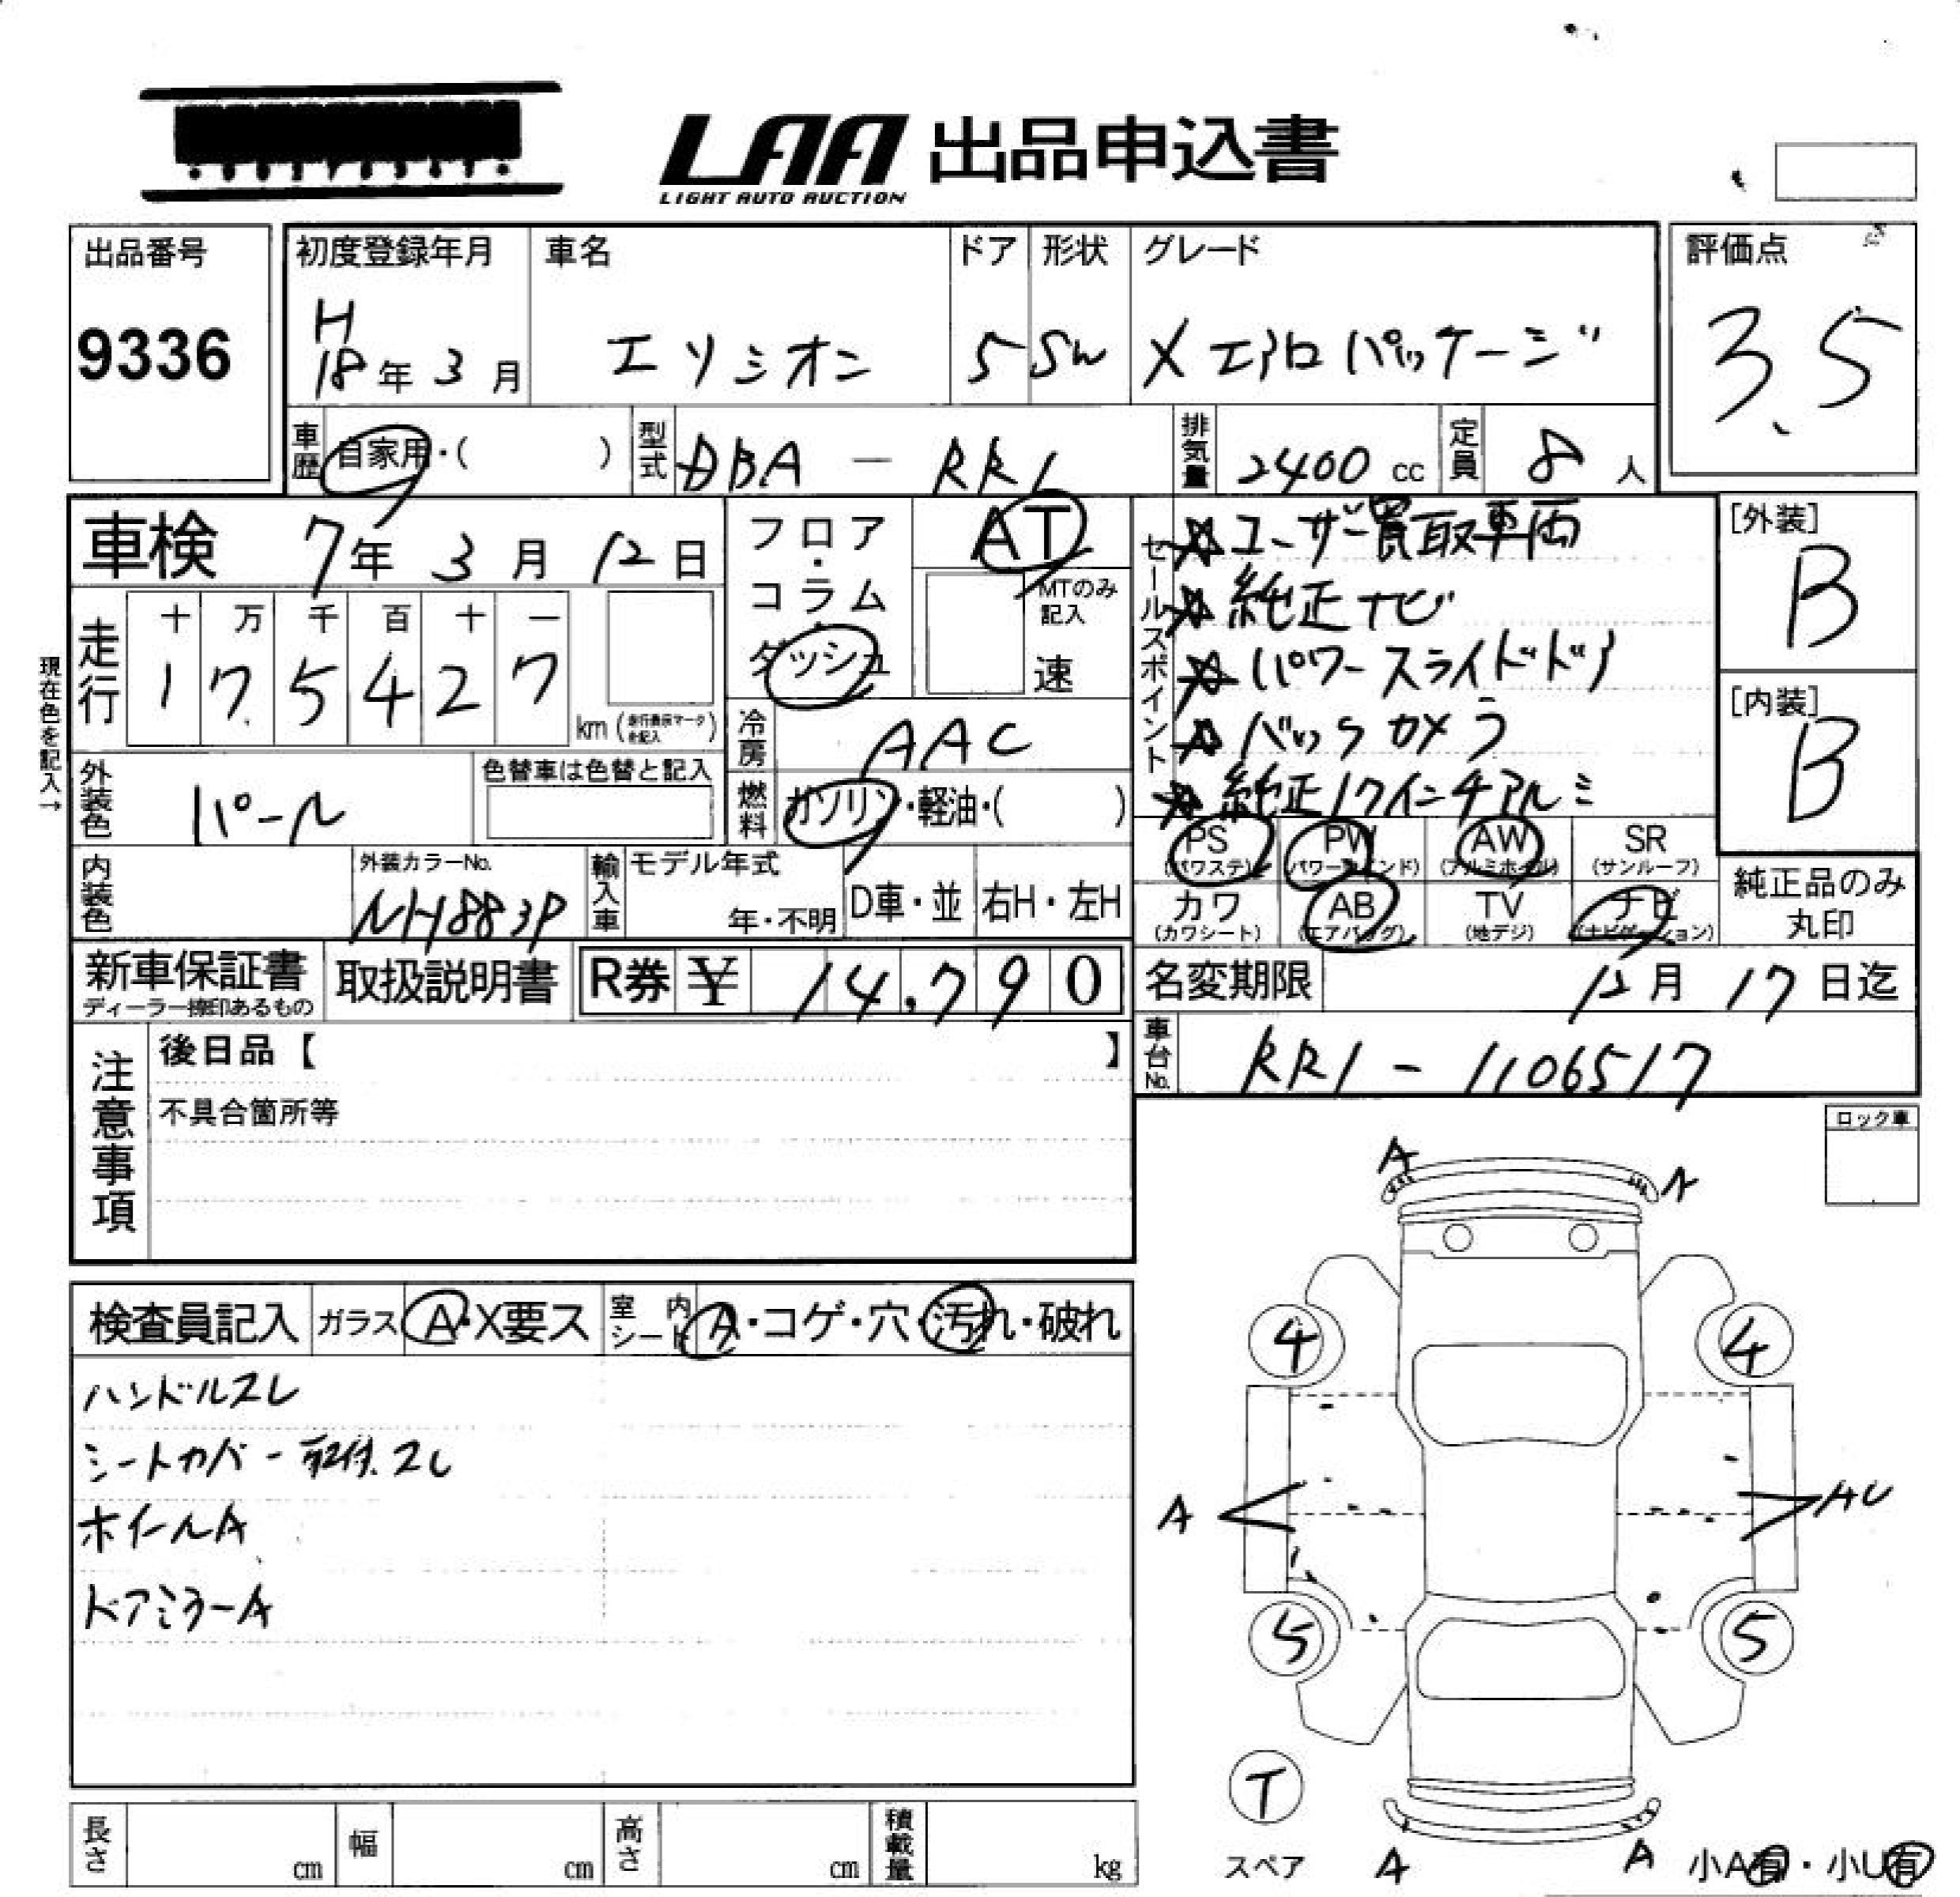 LAA 出品申込書
LIGHT AUTO AUCTION
出品番号 初度登録年月 車名 ドア 形状 グレード 評価点
9336 H18年3月 エリシオン 5 SW Xエアロパッケージ 3.5
車歴 自家用・( ) 型式 DBA-RR1 排気量 2400cc 定員 8人
車検 7年3月12日
フロア・コラム・ダッシュ AT
MTのみ記入 速
セールスポイント
☆ユーザー買取車両
☆純正ナビ
☆パワースライドドア
☆バックカメラ
☆純正17インチアルミ
[外装] B
[内装] B
現在色を記入→
走行 十 万 千 百 十 一
1 7. 5 4 2 7 km(走行表示マークを記入)
冷房 AAC
外装色 パール 色替車は色替と記入
燃料 ガソリン・軽油・( )
PS(パワステ) PW(パワーウィンド) AW(アルミホイル) SR(サンルーフ)
カワ(カワシート) AB(エアバッグ) TV(地デジ) ナビ(ナビゲーション)
純正品のみ丸印
内装色 外装カラーNo. NH883P 輸入車 モデル年式 年・不明 D車・並 右H・左H
新車保証書 ディーラー捺印あるもの 取扱説明書 R券 ¥ 14,790
名変期限 12月17日迄
車台No. RR1-1106517
注意事項
後日品【 】
不具合箇所等
ロック車
検査員記入 ガラス A・X要ス 室内シート A・コゲ・穴・汚れ・破れ
ハンドルスレ
シートカバー取付.スレ
ホイールA
ドアミラーA
A A
4 4
A AU
5 5
T
スペア A A 小A有・小U有
長さ cm 幅 cm 高さ cm 積載量 kg